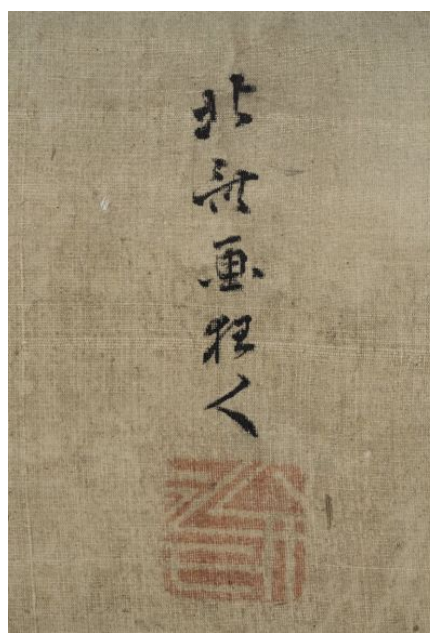 北斎画狂人